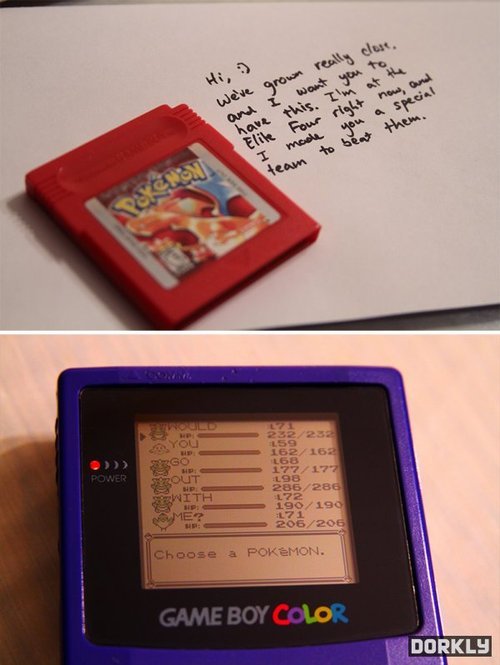 Hi, :)
We've grown really close.
and I want you to
have this. I'm at the
Elite Four right now, and
I made you a special
team to beat them.
POKéMON
WOULD :L71
HP: 232/232
YOU :L59
HP: 162/162
GO :L68
HP: 177/177
OUT :L98
HP: 286/286
WITH :L72
HP: 190/190
ME? :L71
HP: 206/206
Choose a POKéMON.
POWER
GAME BOY COLOR
DORKLY